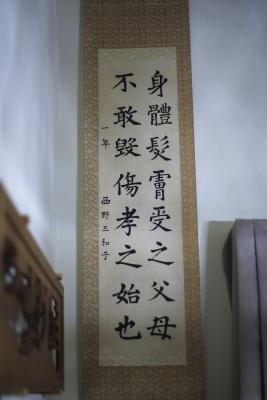 身體髮膚受之父母
不敢毀傷孝之始也
一年 西野三和子